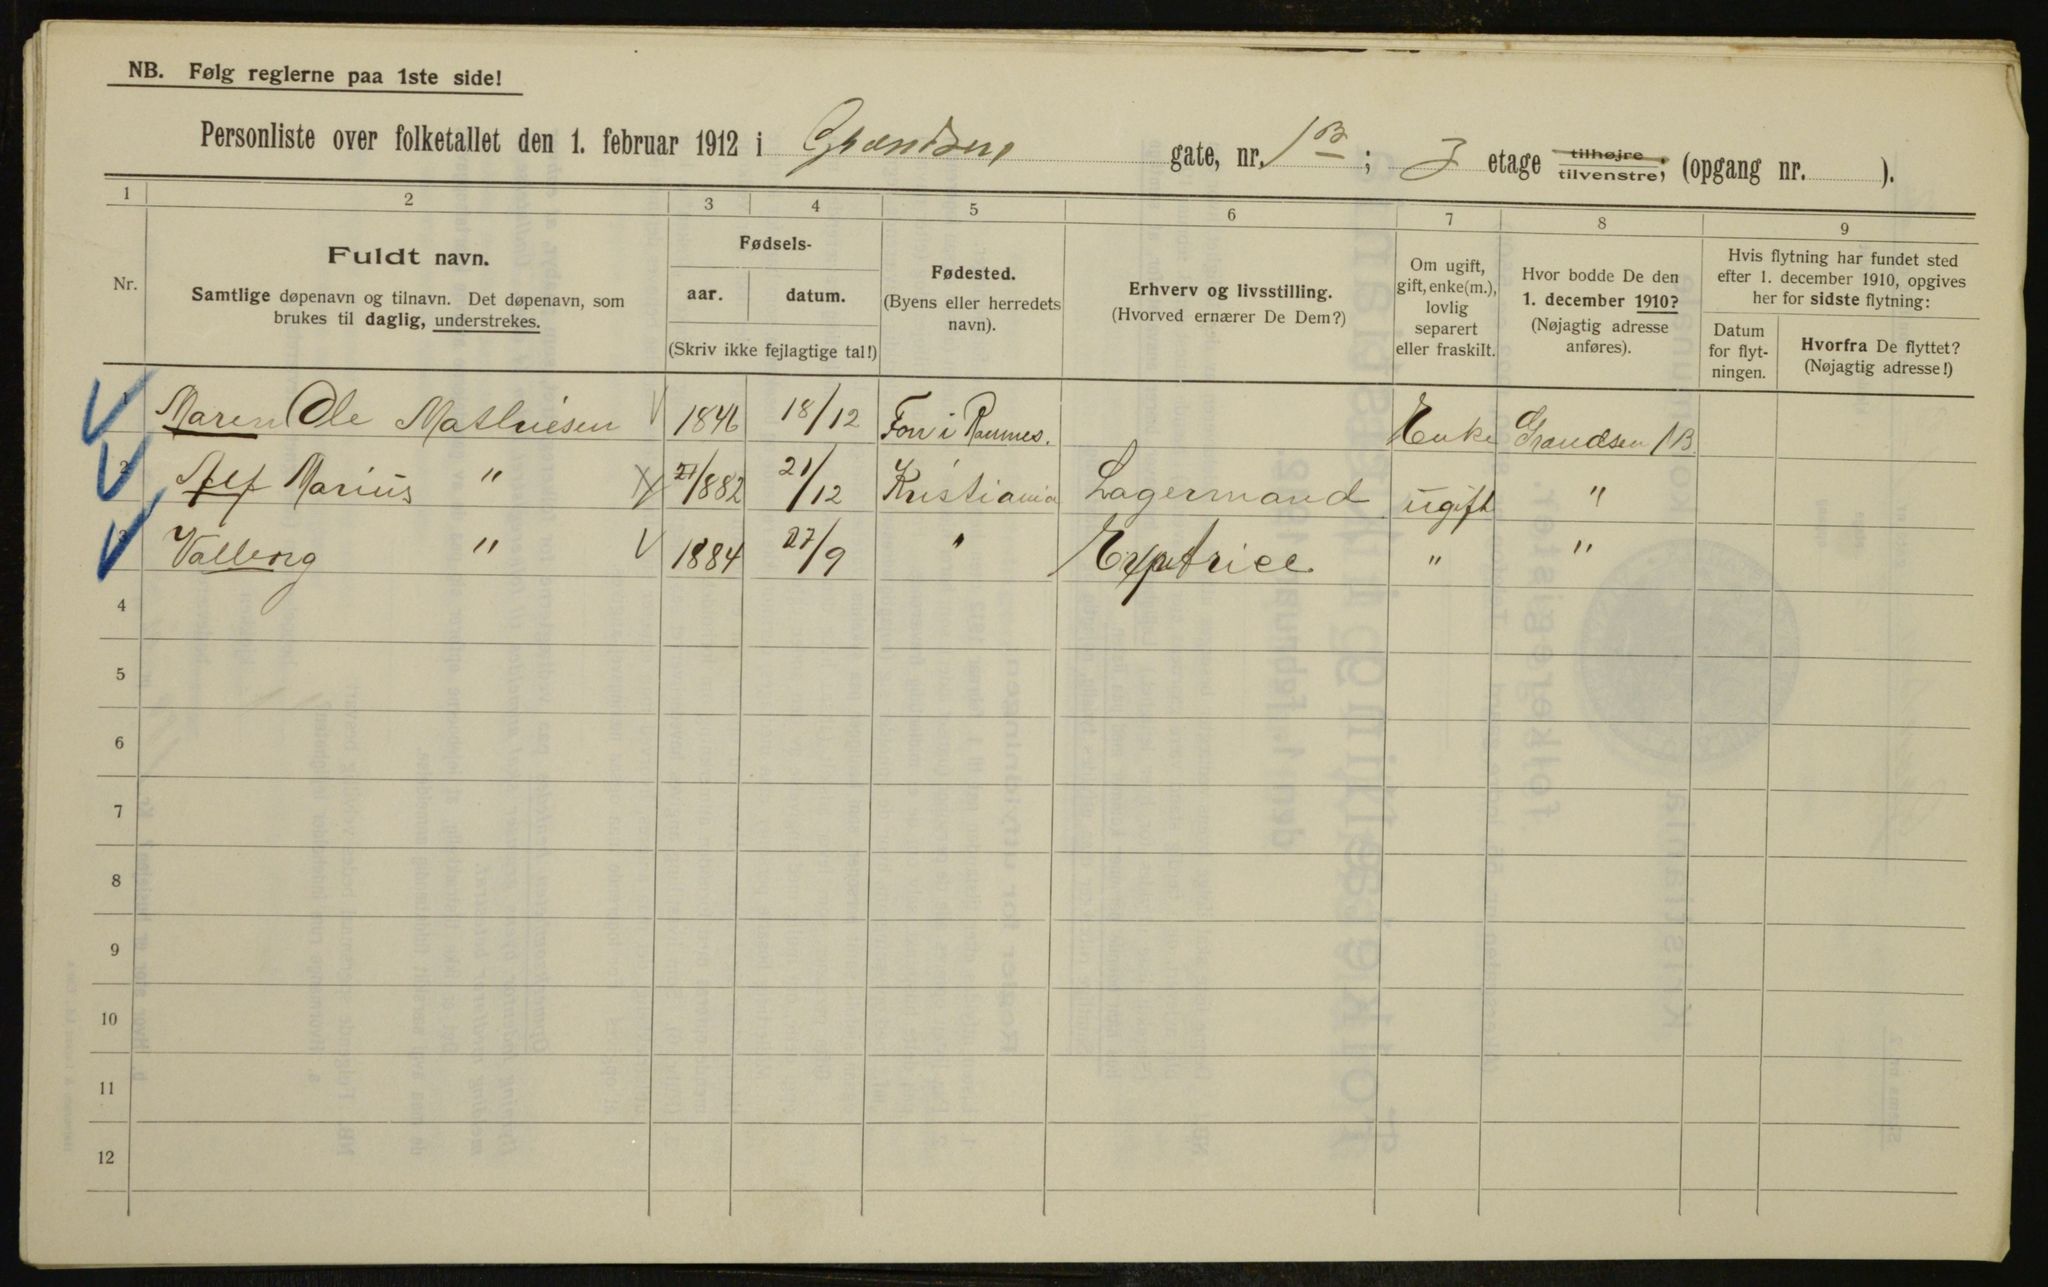 NB. Følg reglerne paa 1ste side!
Personliste over folketallet den 1. februar 1912 i Grændsen gate, nr. 1B ; 3 etage tilhøjre, tilvenstre, (opgang nr. ).
1 2 3 4 5 6 7 8 9
Nr.
Fuldt navn.
Samtlige døpenavn og tilnavn. Det døpenavn, som
brukes til daglig, understrekes.
Fødsels-
aar. datum.
(Skriv ikke fejlagtige tal!)
Fødested.
(Byens eller herredets
navn).
Erhverv og livsstilling.
(Hvorved ernærer De Dem?)
Om ugift,
gift, enke(m.),
lovlig
separert
eller fraskilt.
Hvor bodde De den
1. december 1910?
(Nøjagtig adresse
anføres).
Hvis flytning har fundet sted
efter 1. december 1910, opgives
her for sidste flytning:
Datum
for flyt-
ningen.
Hvorfra De flyttet?
(Nøjagtig adresse!)
1 Maren Ole Mathiesen 1846 18/12 i Raumes. Enke Grændsen 1B
2 Alf Marius " 1882 21/12 Kristiania Lagermand ugift "
3 Valborg " 1884 27/9 " Exptrice. " "
4
5
6
7
8
9
10
11
12